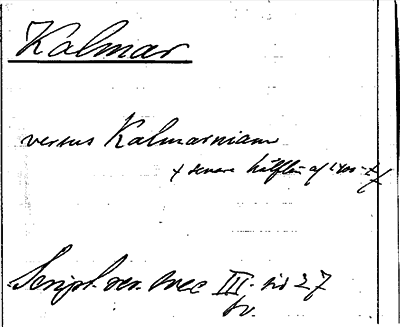 Kalmar
versus Kalmarniam
x senare hälften af 1300-t f
Script. rer. svec III. sid 27